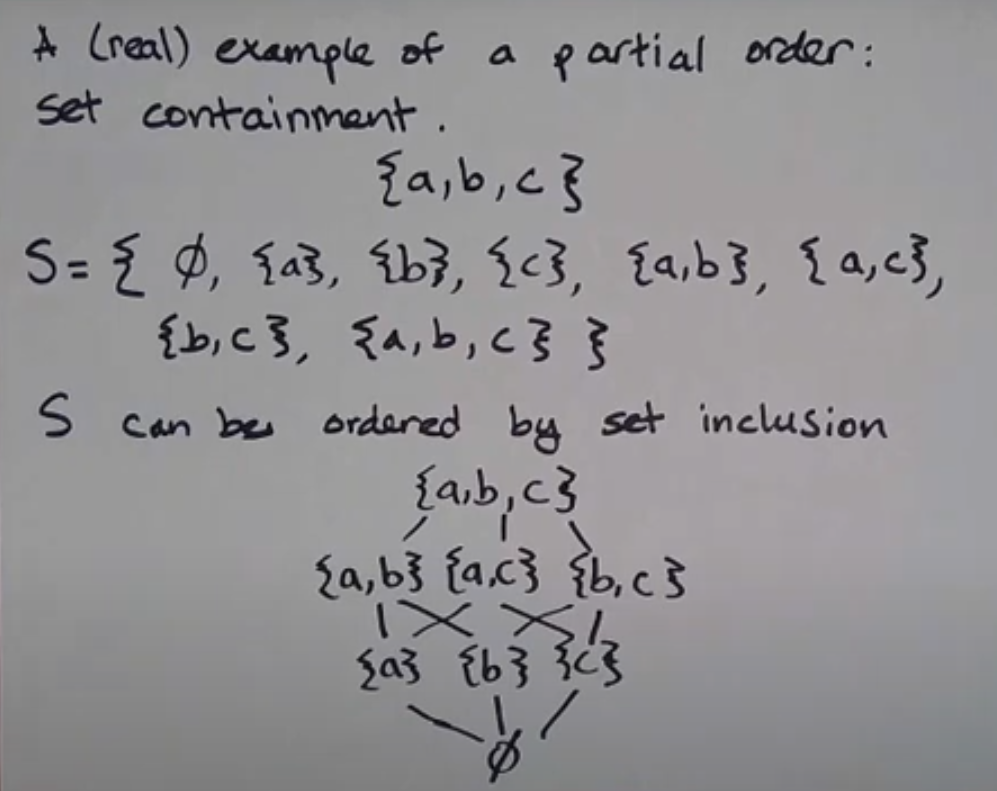 A (real) example of a partial order:
set containment.
{a,b,c}
S = { ∅, {a}, {b}, {c}, {a,b}, {a,c},
{b,c}, {a,b,c} }
S can be ordered by set inclusion
{a,b,c}
{a,b} {a,c} {b,c}
{a} {b} {c}
∅